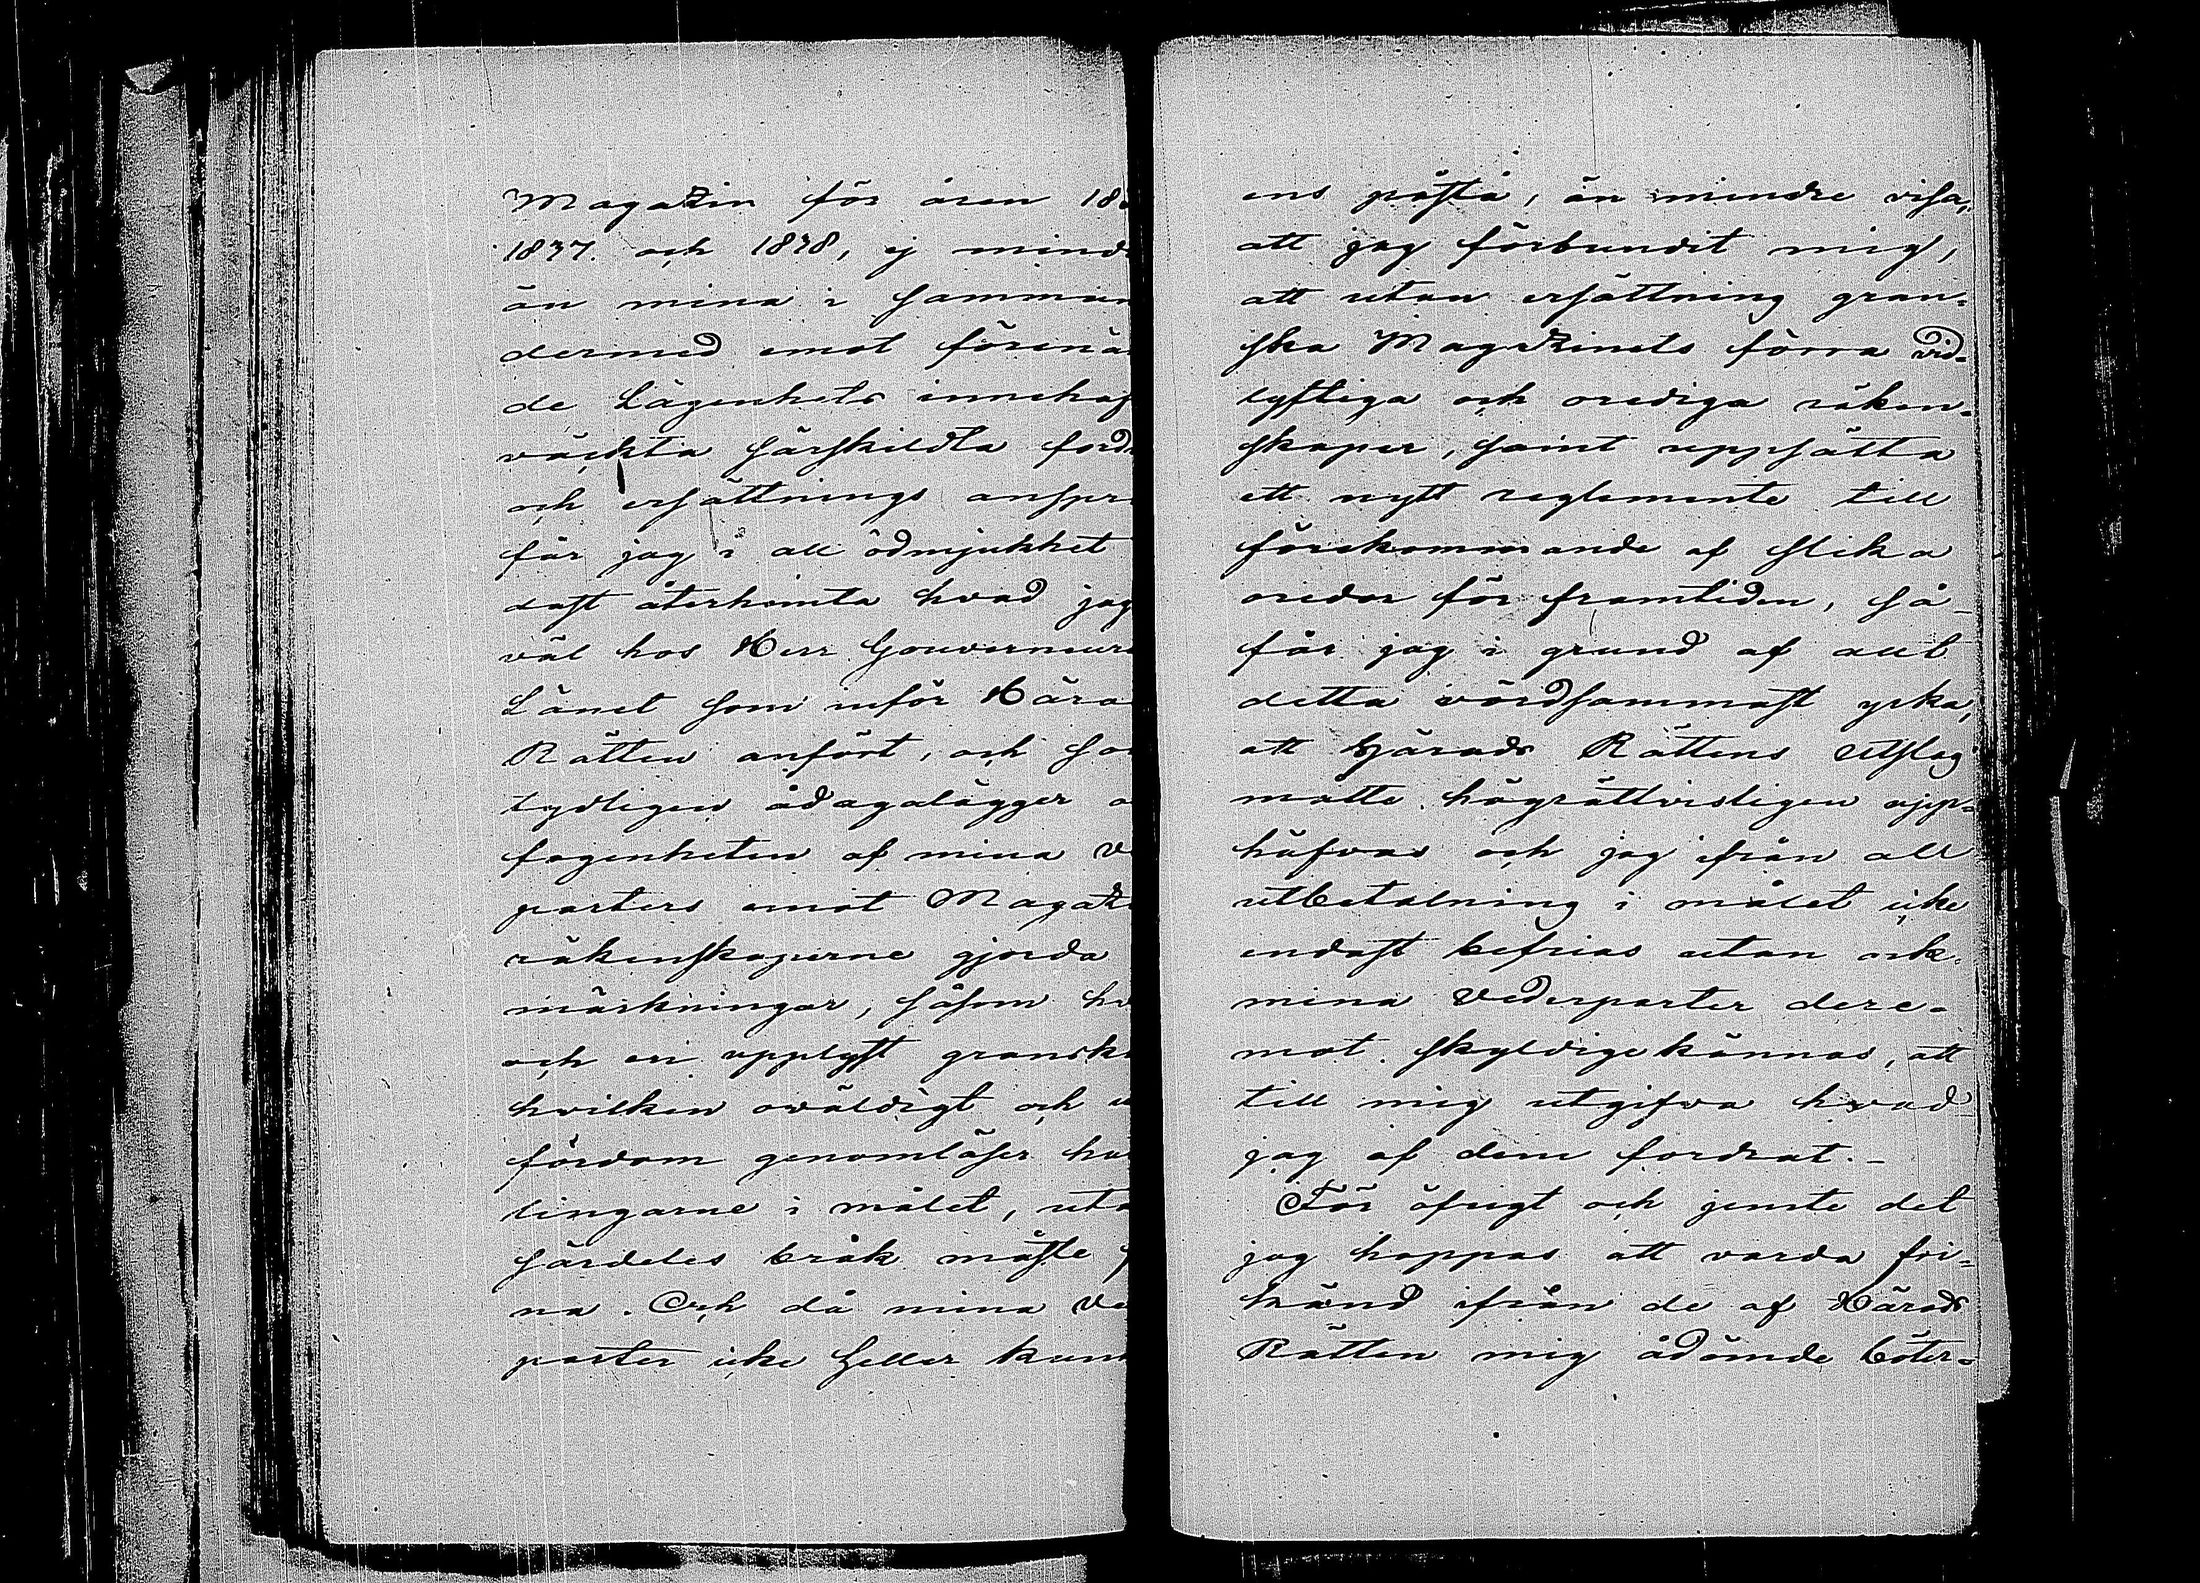 Magazin för åren 18
1837. och 1838, ej mind
än mina i samman
dermed emot förenä
de Lägenhets innehaf
väckta särskildta ford
och ersättnings anspr
får jag i all ödmjukhet
dast återhemta hvad jag
väl hos Herr Gouverneure
Länet som inför Hära
Rätten anfört, och so
tydligen ådagalägger o
fogenheten af mina v
parters emot Magazi
räkenskaperne gjorda
märkningar, såsom hv
och en upplyst gransk
hvilken oväldigt och u
fördom genomläser ha
lingarne i målet, uta
särdeles bråk måste f
na. Och då mina Ve
parter icke heller kun
ens påstå, än mindre visa,
att jag förbundit mig,
att utan ersättning gran-
ska Magazinets förra vid-
lyftiga och orediga räken-
skaper, samt uppsätta
ett nytt reglemente till
förekommande af slika
oredor för framtiden, så
får jag i grund af allt
detta vördsammast yrka,
att Härads Rättens Utslag
måtte högrättvisligen upp-
häfvas och jag ifrån all
utbetalning i målet icke
endast befrias utan ock
mina Vederparter dere-
mot skyldige kännas, att
till mig utgifva hvad
jag af dem fordrat. -
För öfrigt och jemte det
jag hoppas att varda fri-
känd ifrån de af Härads
Rätten mig ådömde böter-